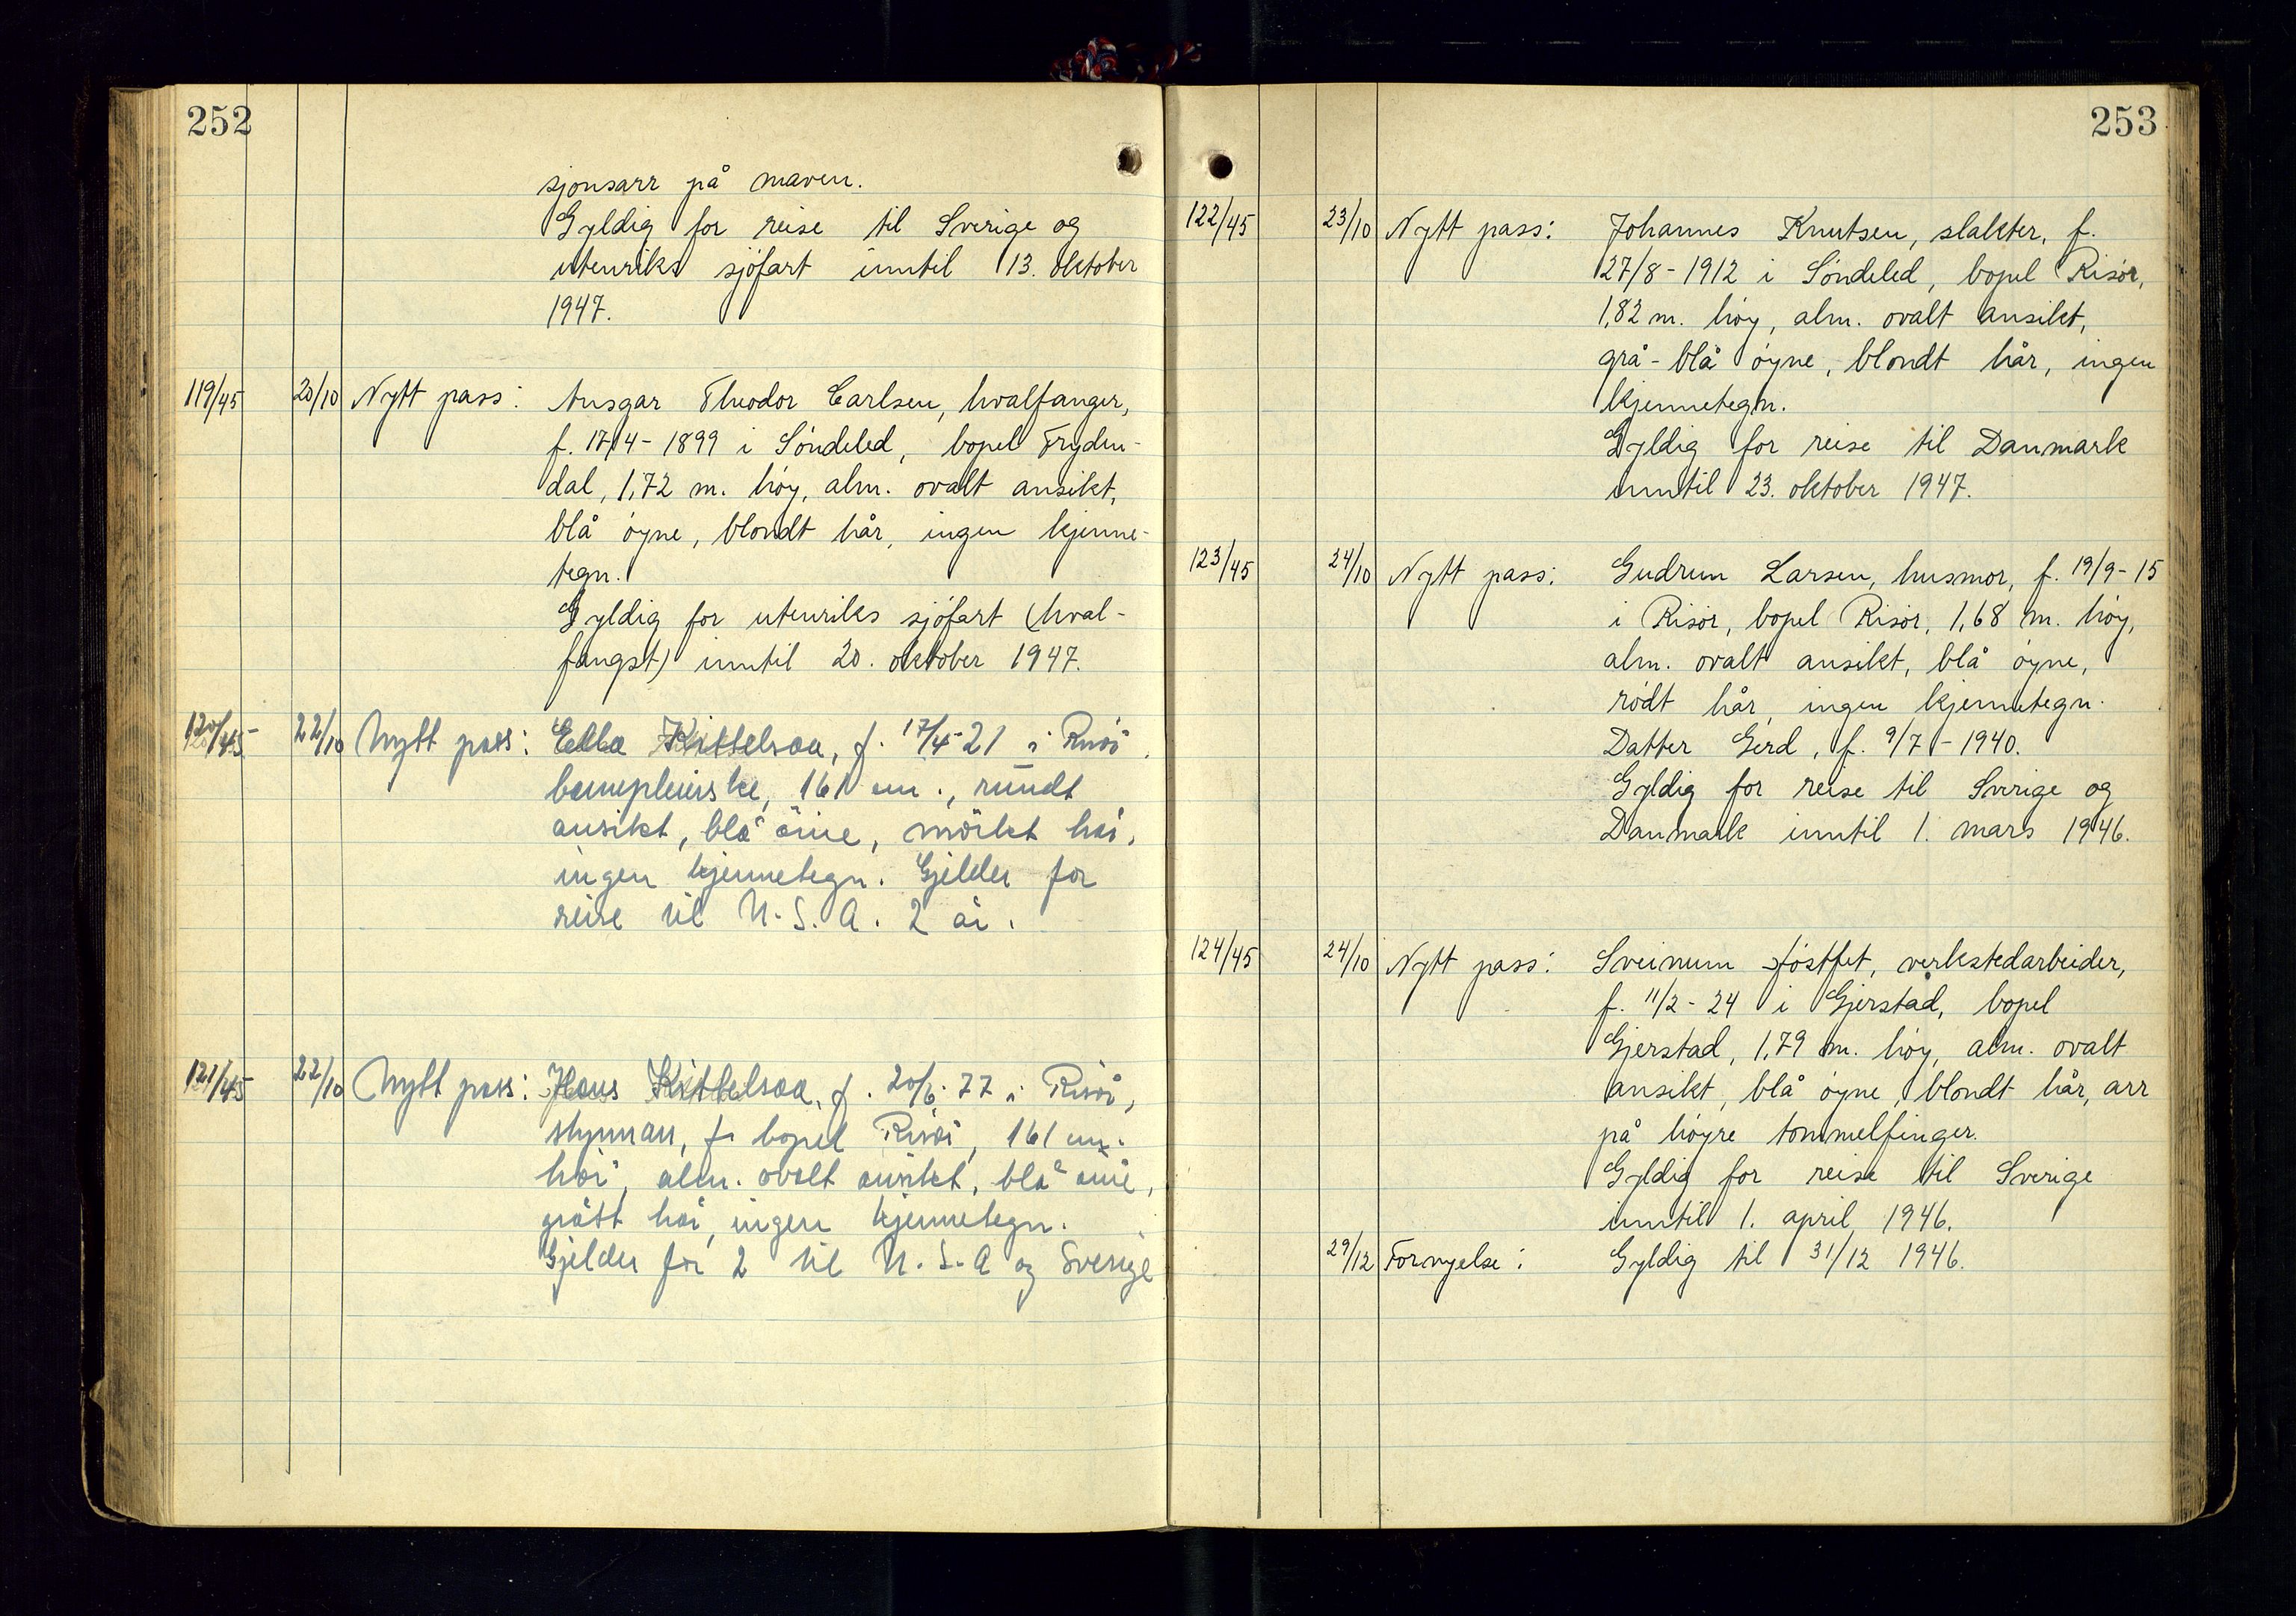 252
sjonsarr på maven.
Gyldig for reise til Sverige og
utenriks sjöfart inntil 13. oktober
1947.
119/45 20/10 Nytt pass: Ansgar Theodor Carlsen, hvalfanger,
f. 17/4-1899 i Söndeled, bopel Fryden-
dal, 1,72 m. höy, alm. ovalt ansikt,
blå öyne, blondt hår, ingen kjenne-
tegn.
Gyldig for utenriks sjöfart (hval-
fangst) inntil 20. oktober 1947.
120/45 22/10 Nytt pass: Ella Kittelsaa, f. 17/4-21 i Risör.
barnepleierske, 161 cm., rundt
ansikt, blå öine, mörkt hår,
ingen kjennetegn. Gjelder for
reise til U.S.A. 2 år.
121/45 22/10 Nytt pass: Hans Kittelsaa, f. 20/6-77 i Risör,
styrman, f. bopel Risör, 161 cm.
höi, alm. ovalt ansikt, blå öine,
grått hår, ingen kjennetegn.
Gjelder for 2 til U.S.A og Sverige
253
122/45 23/10 Nytt pass: Johannes Knutsen, slakter, f.
27/8-1912 i Söndeled, bopel Risör,
1,82 m. höy, alm. ovalt ansikt,
grå-blå öyne, blondt hår, ingen
kjennetegn.
Gyldig for reise til Danmark
inntil 23. oktober 1947.
123/45 24/10 Nytt pass: Gudrun Larsen, husmor, f. 19/9-15
i Risör, bopel Risör, 1,68 m. höy,
alm. ovalt ansikt, blå öyne,
rödt hår, ingen kjennetegn.
Datter Gerd, f. 9/7-1940.
Gyldig for reise til Sverige og
Danmark inntil 1. mars 1946.
124/45 24/10 Nytt pass: Sveinum verkstedarbeider,
f. 11/2-24 i Gjerstad, bopel
Gjerstad, 1,79 m. höy, alm. ovalt
ansikt, blå öyne, blondt hår, arr
på höyre tommelfinger.
Gyldig for reise til Sverige
inntil 1. april 1946.
29/12 Fornyelse: Gyldig til 31/12 1946.